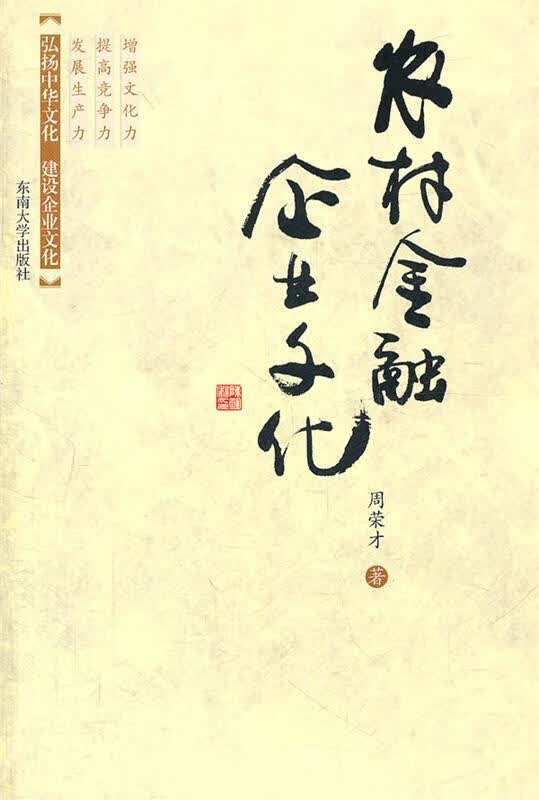 农村金融
企业文化
周荣才
著
增强文化力
提高竞争力
发展生产力
弘扬中华文化 建设企业文化
东南大学出版社